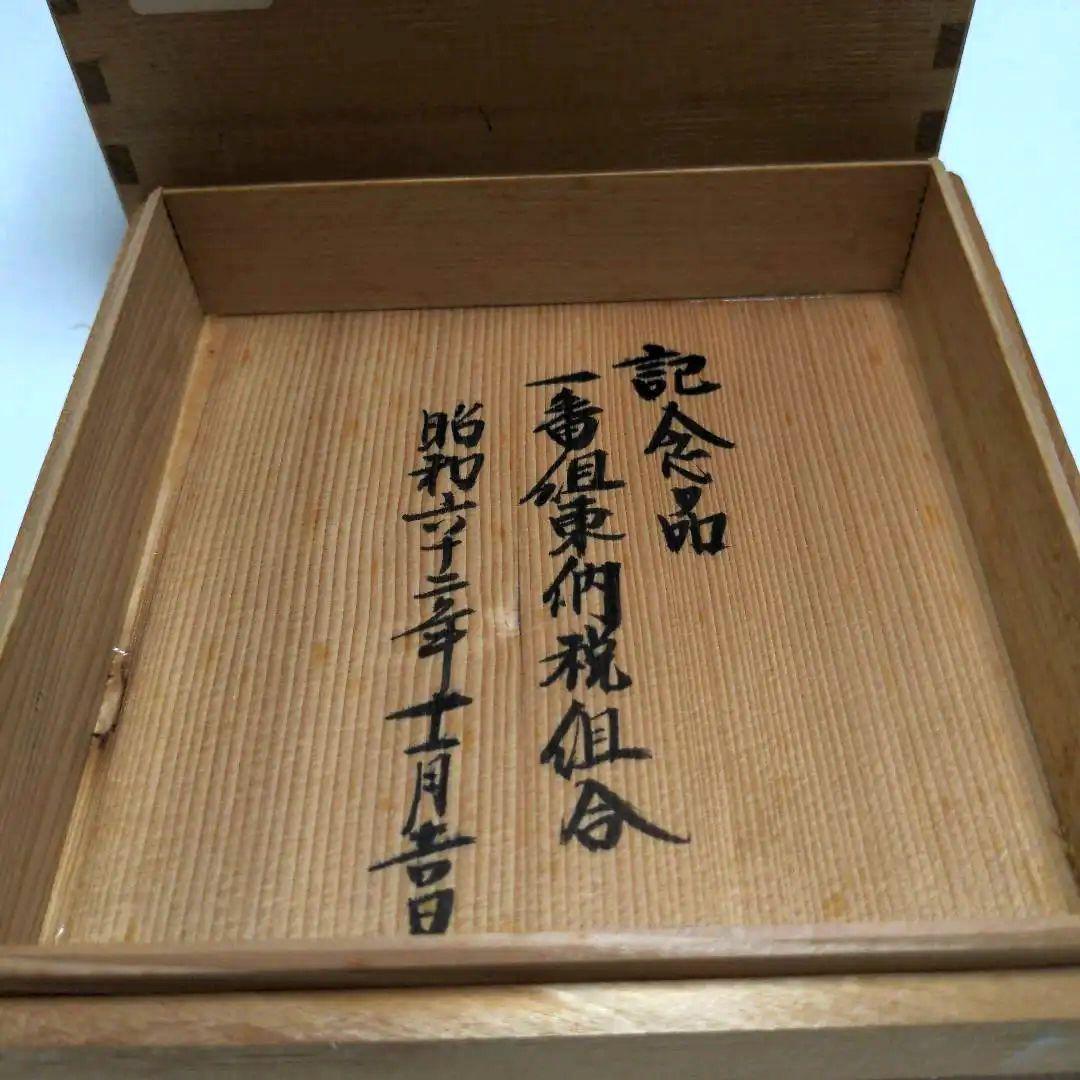 記念品
一番組東納税組合
昭和六十二年十二月吉日